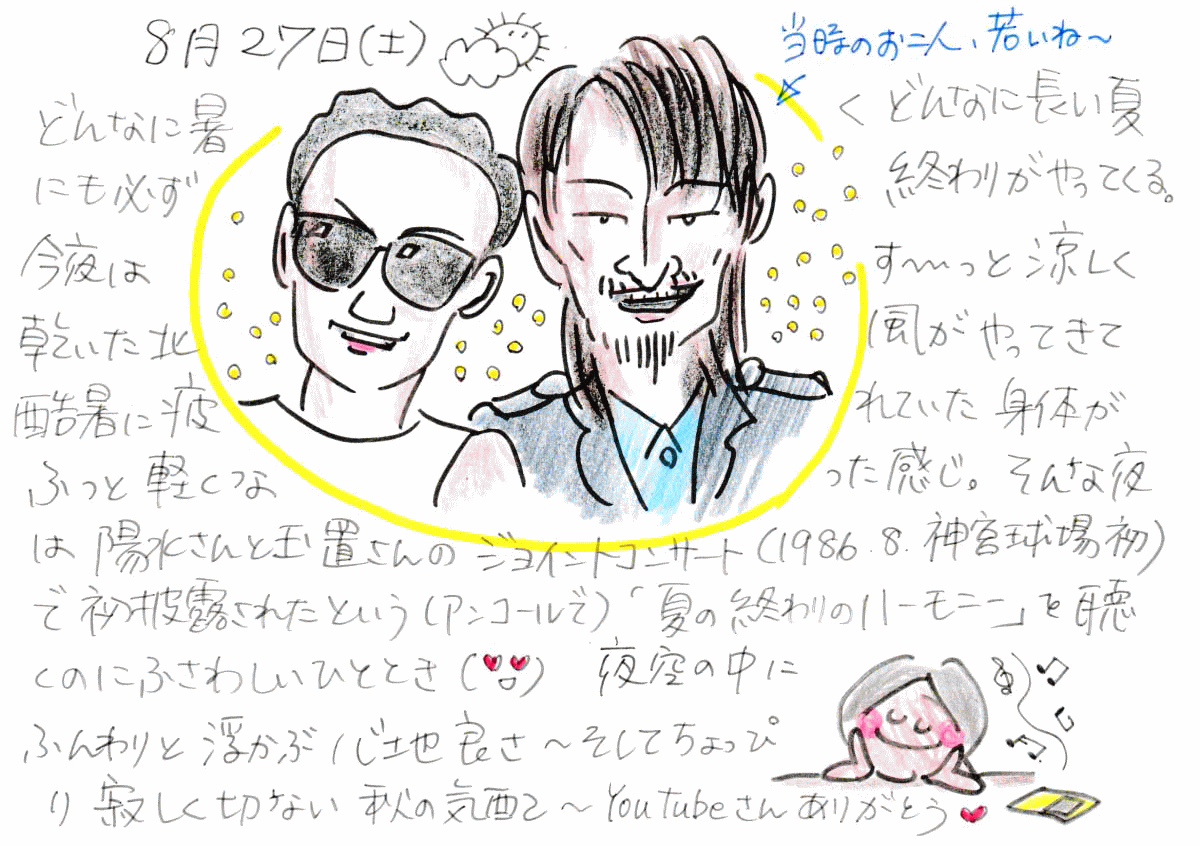 8月27日(土)
当時のお二人、若いね～
どんなに暑く どんなに長い夏
にも必ず 終わりがやってくる。
今夜は す～っと涼しく
乾いた北風がやってきて
酷暑に疲れていた身体が
ふっと軽くなった感じ。そんな夜
は陽水さんと玉置さんのジョイントコンサート(1986.8.神宮球場初)
で初披露されたという(アンコールで)「夏の終わりのハーモニー」を聴
くのにふさわしいひととき 夜空の中に
ふんわりと浮かぶ心地良さ～そしてちょっぴ
り寂しく切ない秋の気配て～YouTubeさんありがとう